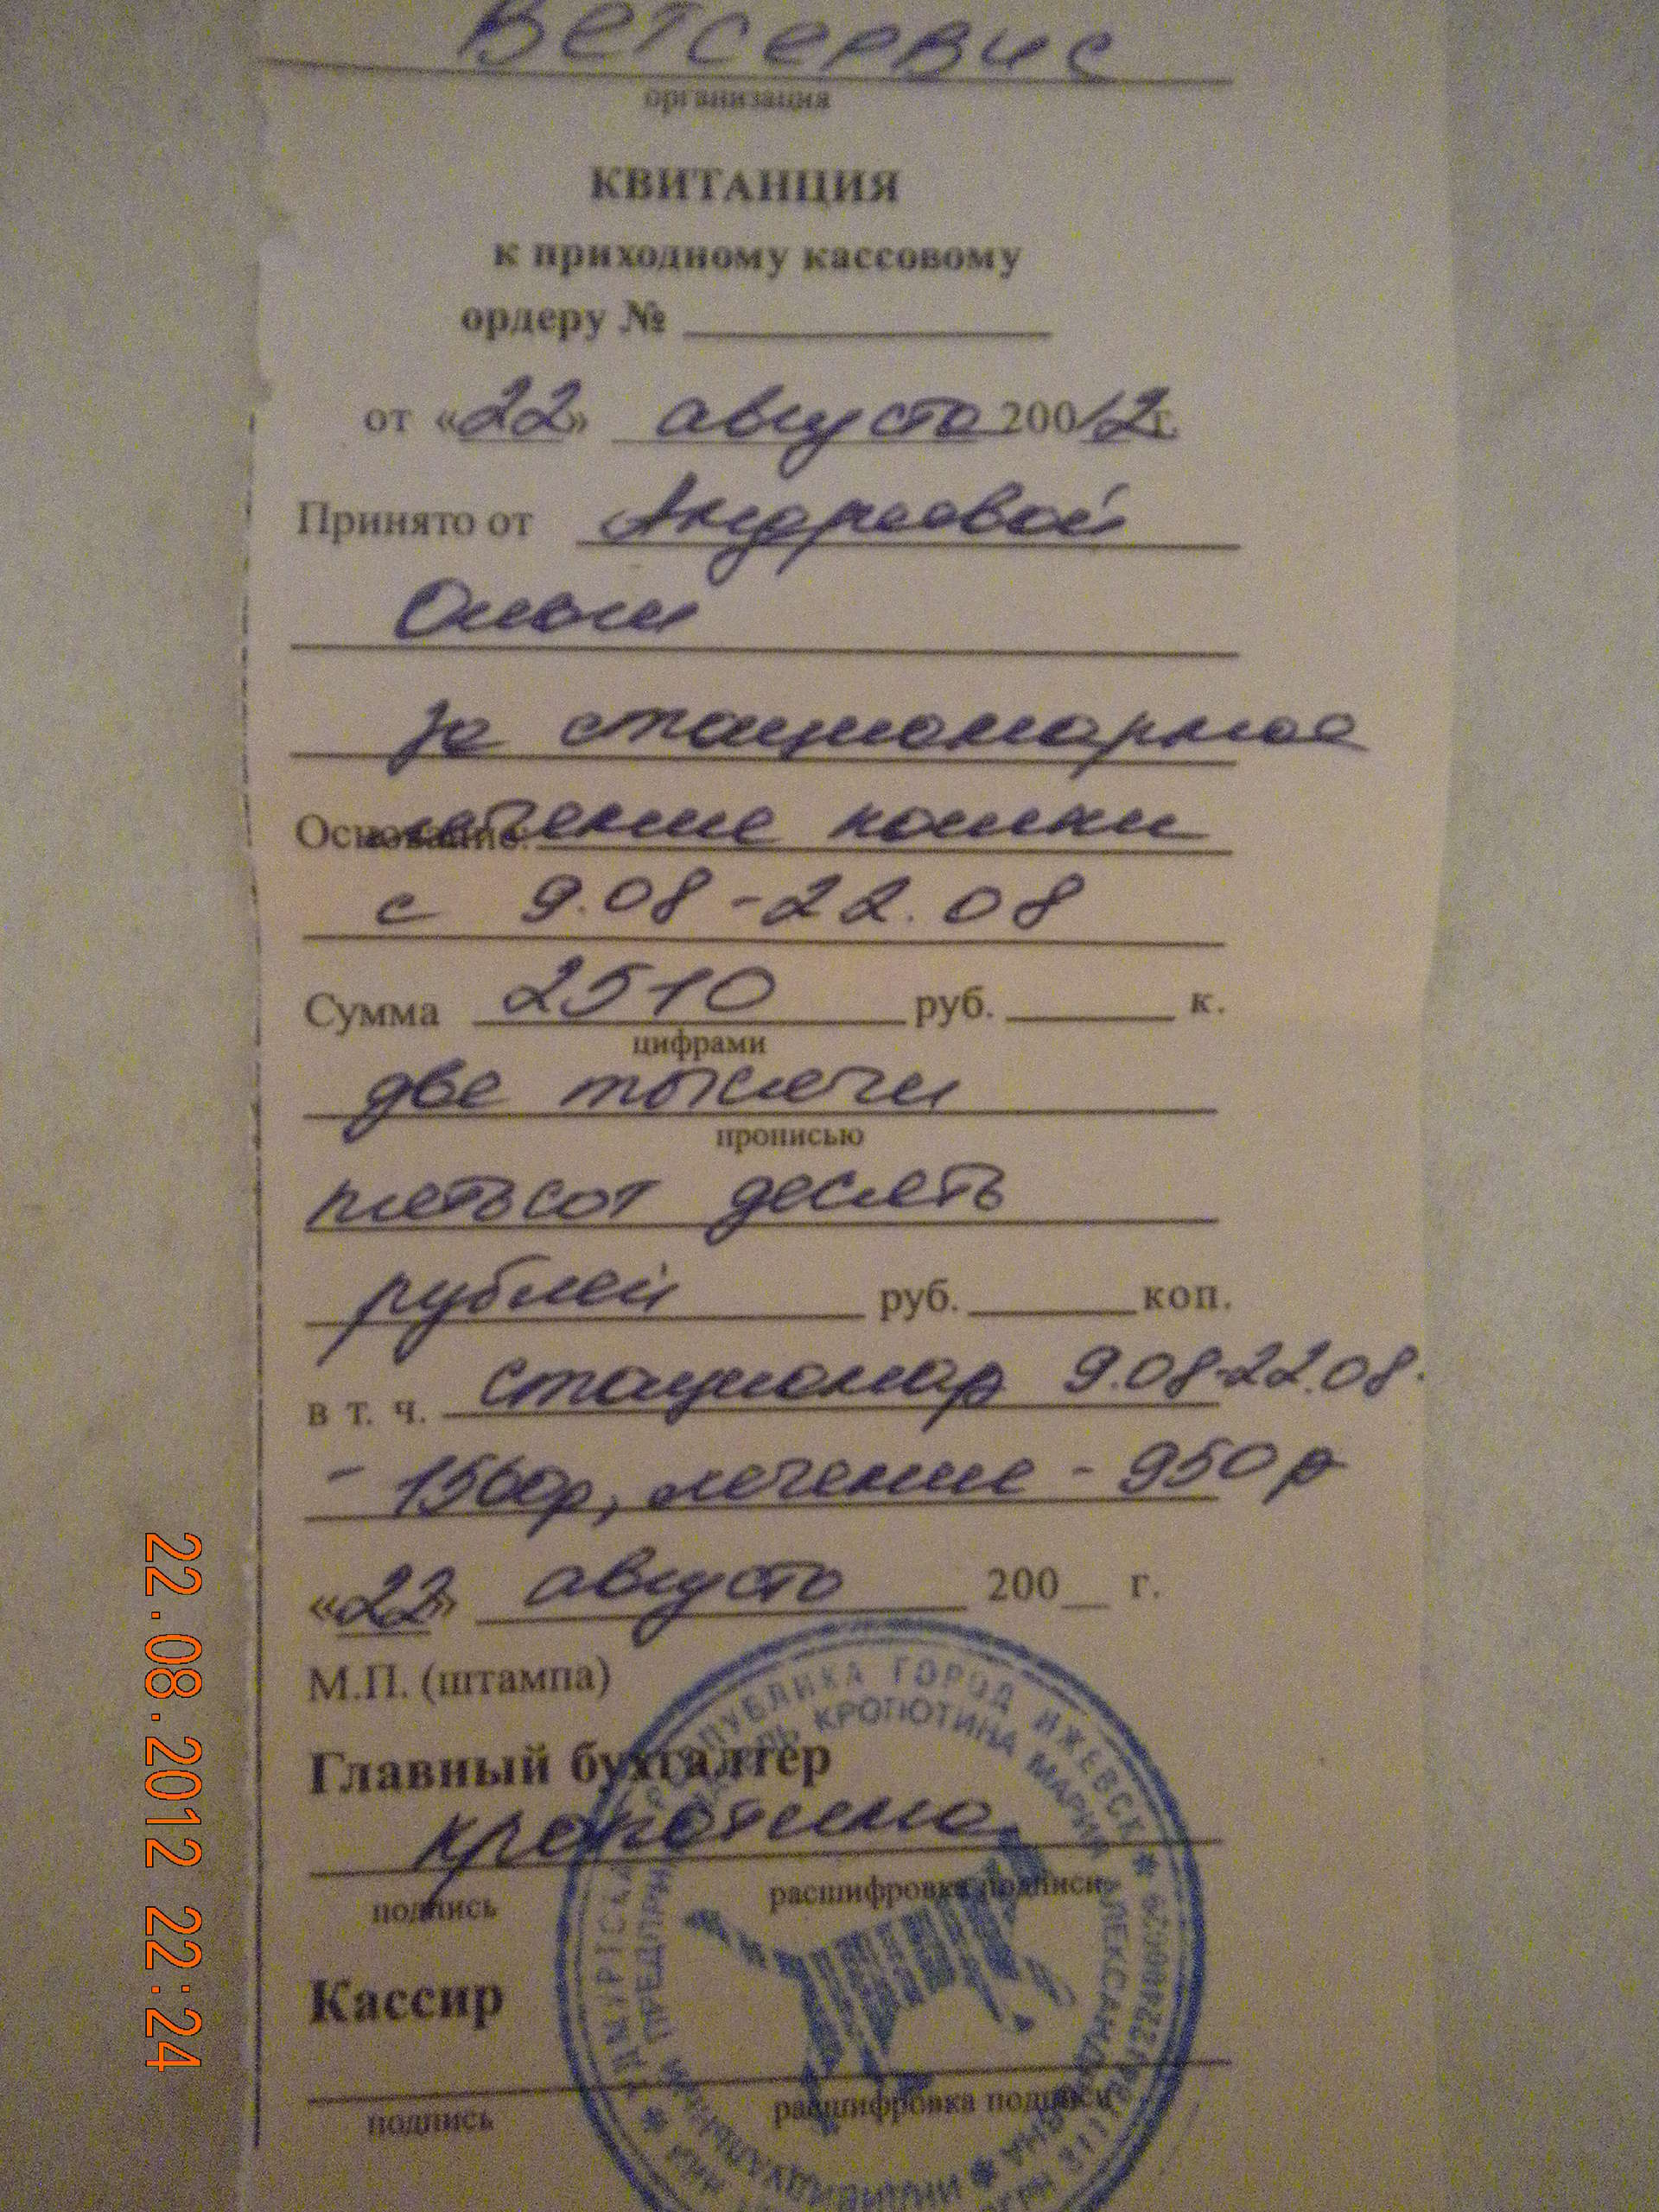 Ветсервис
организация
КВИТАНЦИЯ
к приходному кассовому
ордеру №
от «22» августа 20012г.
Принято от Андреевой
Ольги
за стационарное
Основание: лечение кошки
с 9.08-22.08
Сумма 2510 руб. к.
цифрами
две тысячи
прописью
пятьсот десять
рублей руб. коп.
в т. ч. стационар 9.08-22.08.
- 1560р, лечение - 950р
«22» августа 200 г.
М.П. (штампа)
Главный бухгалтер
Кропотина
подпись расшифровка подписи
Кассир
подпись расшифровка подписи
РЕСПУБЛИКА ГОРОД ИЖЕВСК
КРОПОТИНА МАРИЯ АЛЕКСАНДРОВНА
22.08.2012 22:24